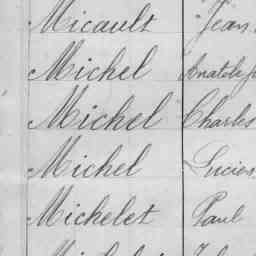 Micault Jean
Michel Anatole
Michel Charles
Michel Lucien
Michelet Paul